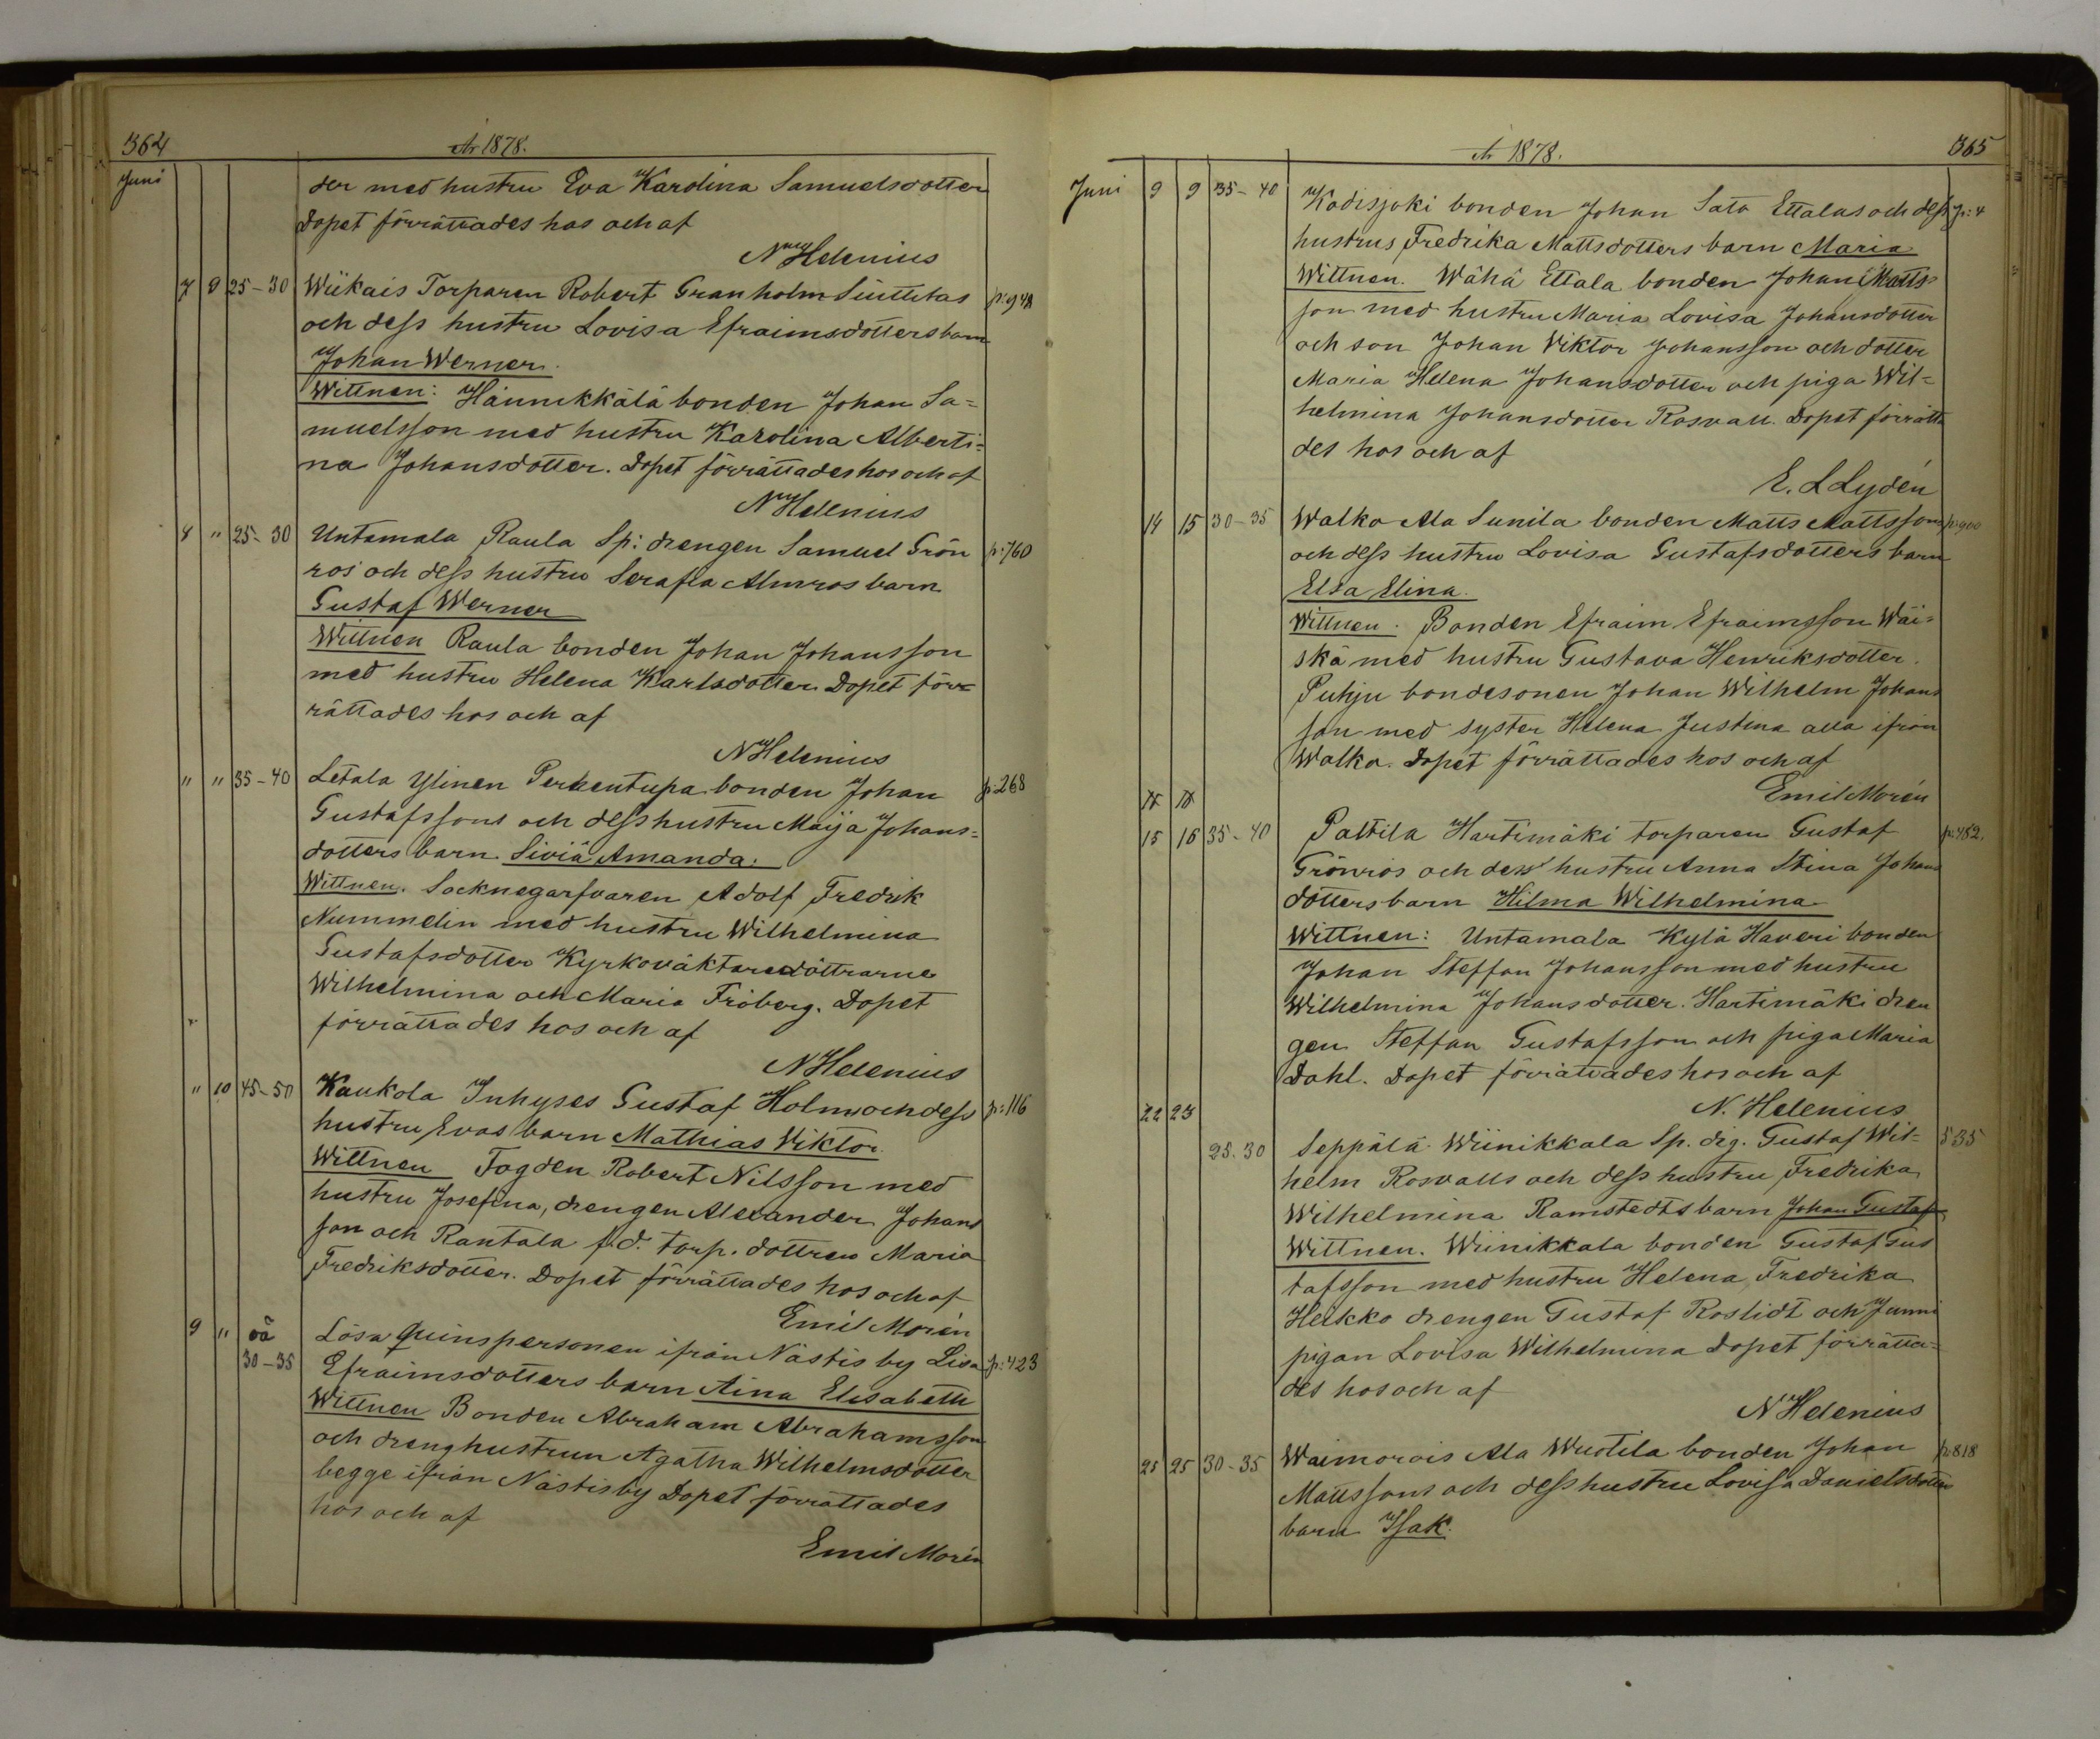 364
År 1878.
Juni
der med hustru Eva Karolina Samuelsdotter
Dopet förrättades hos och af
N Helenius
7 9 25-30 Wiikais Torparen Robert Granholm p: 948
och dess hustru Lovisa Efraimsdotters barn
Johan Werner.
Wittnen: Hännikkälä bonden Johan Sa=
muelsson med hustru Karolina Alberti=
na Johansdotter. Dopet förrättades hos och af
N Helenius
8 " 25-30 Untamala Raula Sp: drengen Samuel Grön p: 760
ros och dess hustru Serafia Almros barn
Gustaf Werner
Wittnen Raula bonden Johan Johansson
med hustru Helena Karlsdotter Dopet förr=
rättades hos och af
N Helenius
" " 35-40 Letala Ylinen Perkentupa bonden Johan p: 268
Gustafssons och dess hustru Maija Johans=
dotters barn Siviä Amanda.
Wittnen. Socknegarfvaren Adolf Fredrik
Nummelin med hustru Wilhelmina
Gustafsdotter Kyrkoväktaredöttrarne
Wilhelmina och Maria Fröberg. Dopet
förrättades hos och af
N Helenius
" 10 45-50 Kaukola Inhyses Gustaf Holms och dess p: 116
hustru Evas barn Mathias Viktor.
Wittnen Fogden Robert Nilsson med
hustru Josefina, drengen Alexander Johans
son och Rantala f.d. torp. dottren Maria
Fredriksdotter. Dopet förrättades hos och af
Emil Morén
9 " oä Lösa qvinspersonen ifrån Nästis by Lisa p: 423
30-35 Efraimsdotters barn Aina Elisabeth
Wittnen Bonden Abraham Abrahamsson
och drenghustrun Agatha Wilhelmsdotter
begge ifrån Nästisby Dopet förrättades
hos och af
Emil Morén
År 1878.
365
Juni 9 9 35-40 Kodisjoki bonden Johan Sato Ettalas och dess p: 4
hustrus Fredrika Mattsdotters barn Maria
Wittnen. Wähä Ettala bonden Johan Matts
son med hustru Maria Lovisa Johansdotter
och son Johan Viktor Johansson och dotter
Maria Helena Johansdotter och piga Wil=
helmina Johansdotter Rosvall. Dopet förrätta
des hos och af
E. L Lydén
14 15 30-35 Walko Ala Sunila bonden Matts Mattssons p: 900
och dess hustru Lovisa Gustafsdotters barn
Elsa Elina.
Wittnen. Bonden Efraim Efraimsson Wäi=
skä med hustru Gustava Henriksdotter.
Puhju bondesonen Johan Wilhelm Johans
son med syster Helena Justina alla ifrån
Walko. Dopet förrättades hos och af
Emil Morén
15 16 35-40 Paltila Hartimäki torparen Gustaf p: 482.
Grönros och dess hustru Anna Stina Johans
dotters barn Hilma Wilhelmina
Wittnen: Untamala Kylä Haveri bonden
Johan Steffan Johansson med hustru
Wilhelmina Johansdotter. Hartimäki dren
gen Steffan Gustafsson och piga Maria
Dahl. Dopet förrättades hos och af
N. Helenius
22 23
25.30 Seppälä Wiinikkala Sp. drg. Gustaf Wil= 535
helm Rosvalls och dess hustru Fredrika
Wilhelmina Ramstedts barn Johan Gustaf
Wittnen. Wiinikkala bonden Gustaf Gus
tafsson med hustru Helena Fredrika
Heikko drengen Gustaf Roslidt och Junni
pigan Lovisa Wilhelmina Dopet förrätta=
des hos och af
N Helenius
25 25 30-35 Waimorois Ala Wuotila bonden Johan p: 818
Mattssons och dess hustru Lovisa Danielsdotters
barn Isak.